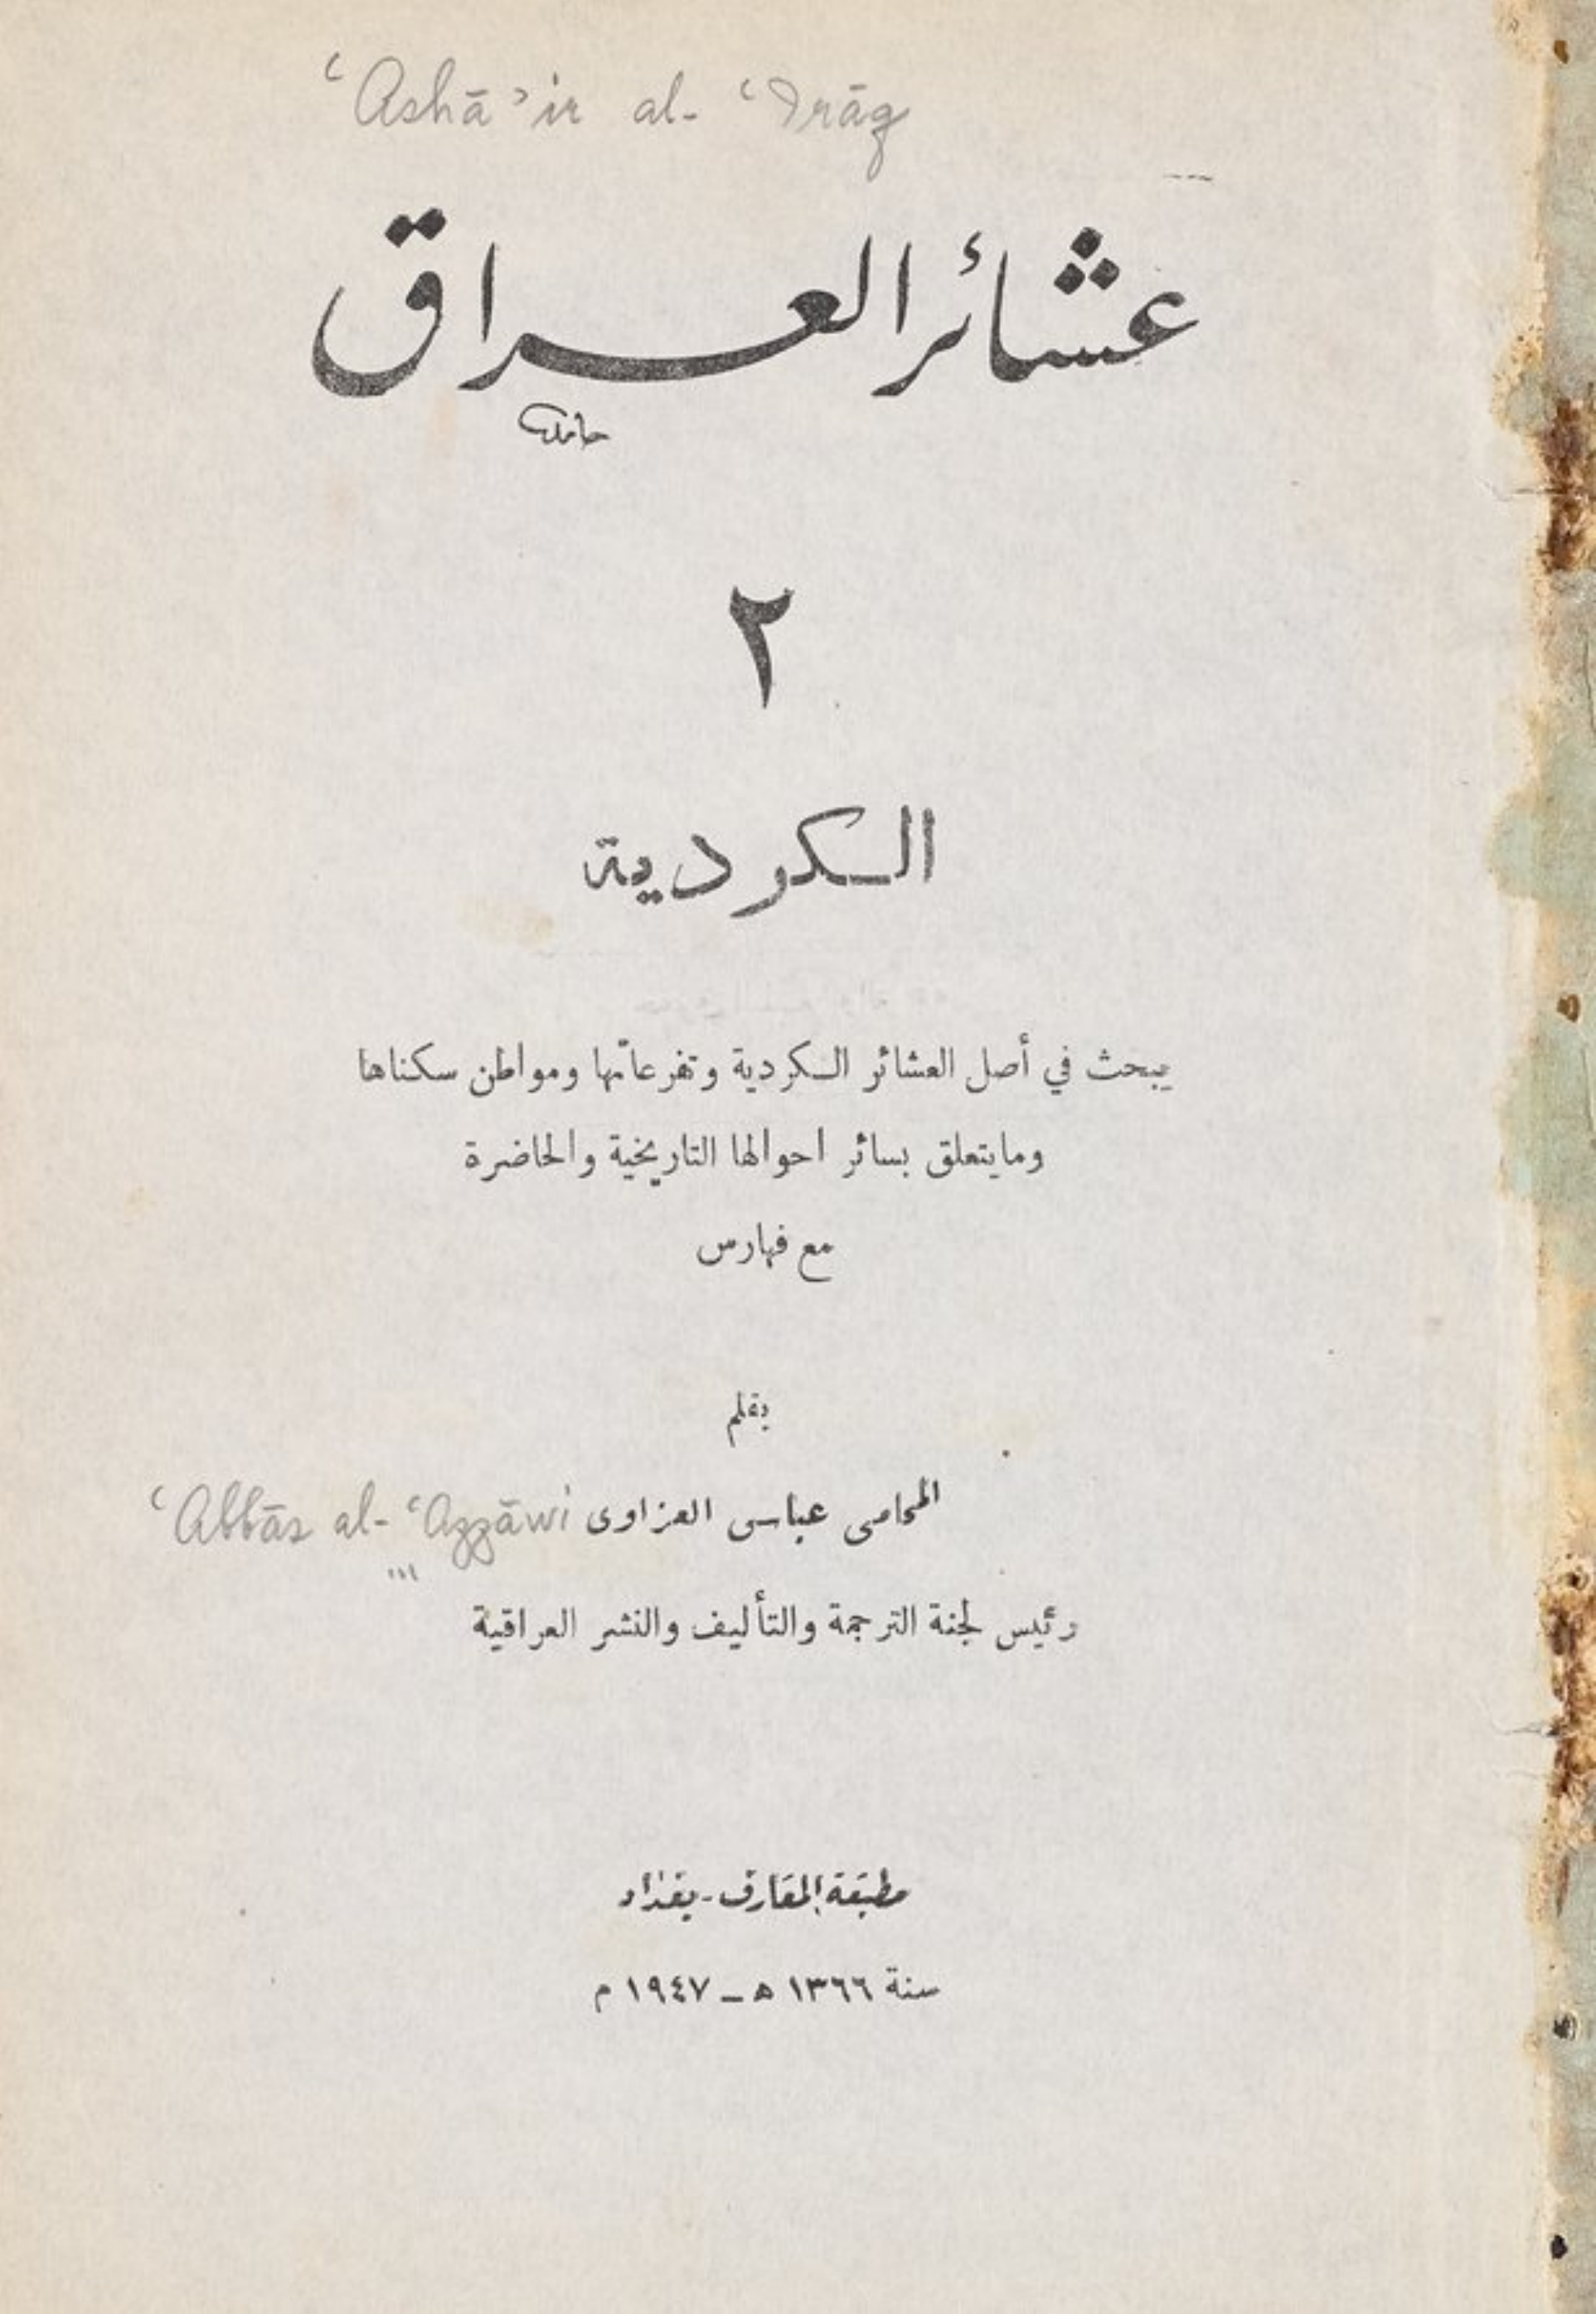 ʿAshāʾir al-ʿIrāq
عشائر العراق
٢
الكردية
يبحث في أصل العشائر الكردية وتفرعاتها ومواطن سكناها
وما يتعلق بسائر احوالها التاريخية والحاضرة
مع فهارس
بقلم
المحامى عباس العزاوى ʿAbbās al-ʿAzzāwi
رئيس لجنة الترجمة والتأليف والنشر العراقية
مطبعة المعارف - بغداد
سنة ١٣٦٦ هـ - ١٩٤٧ م